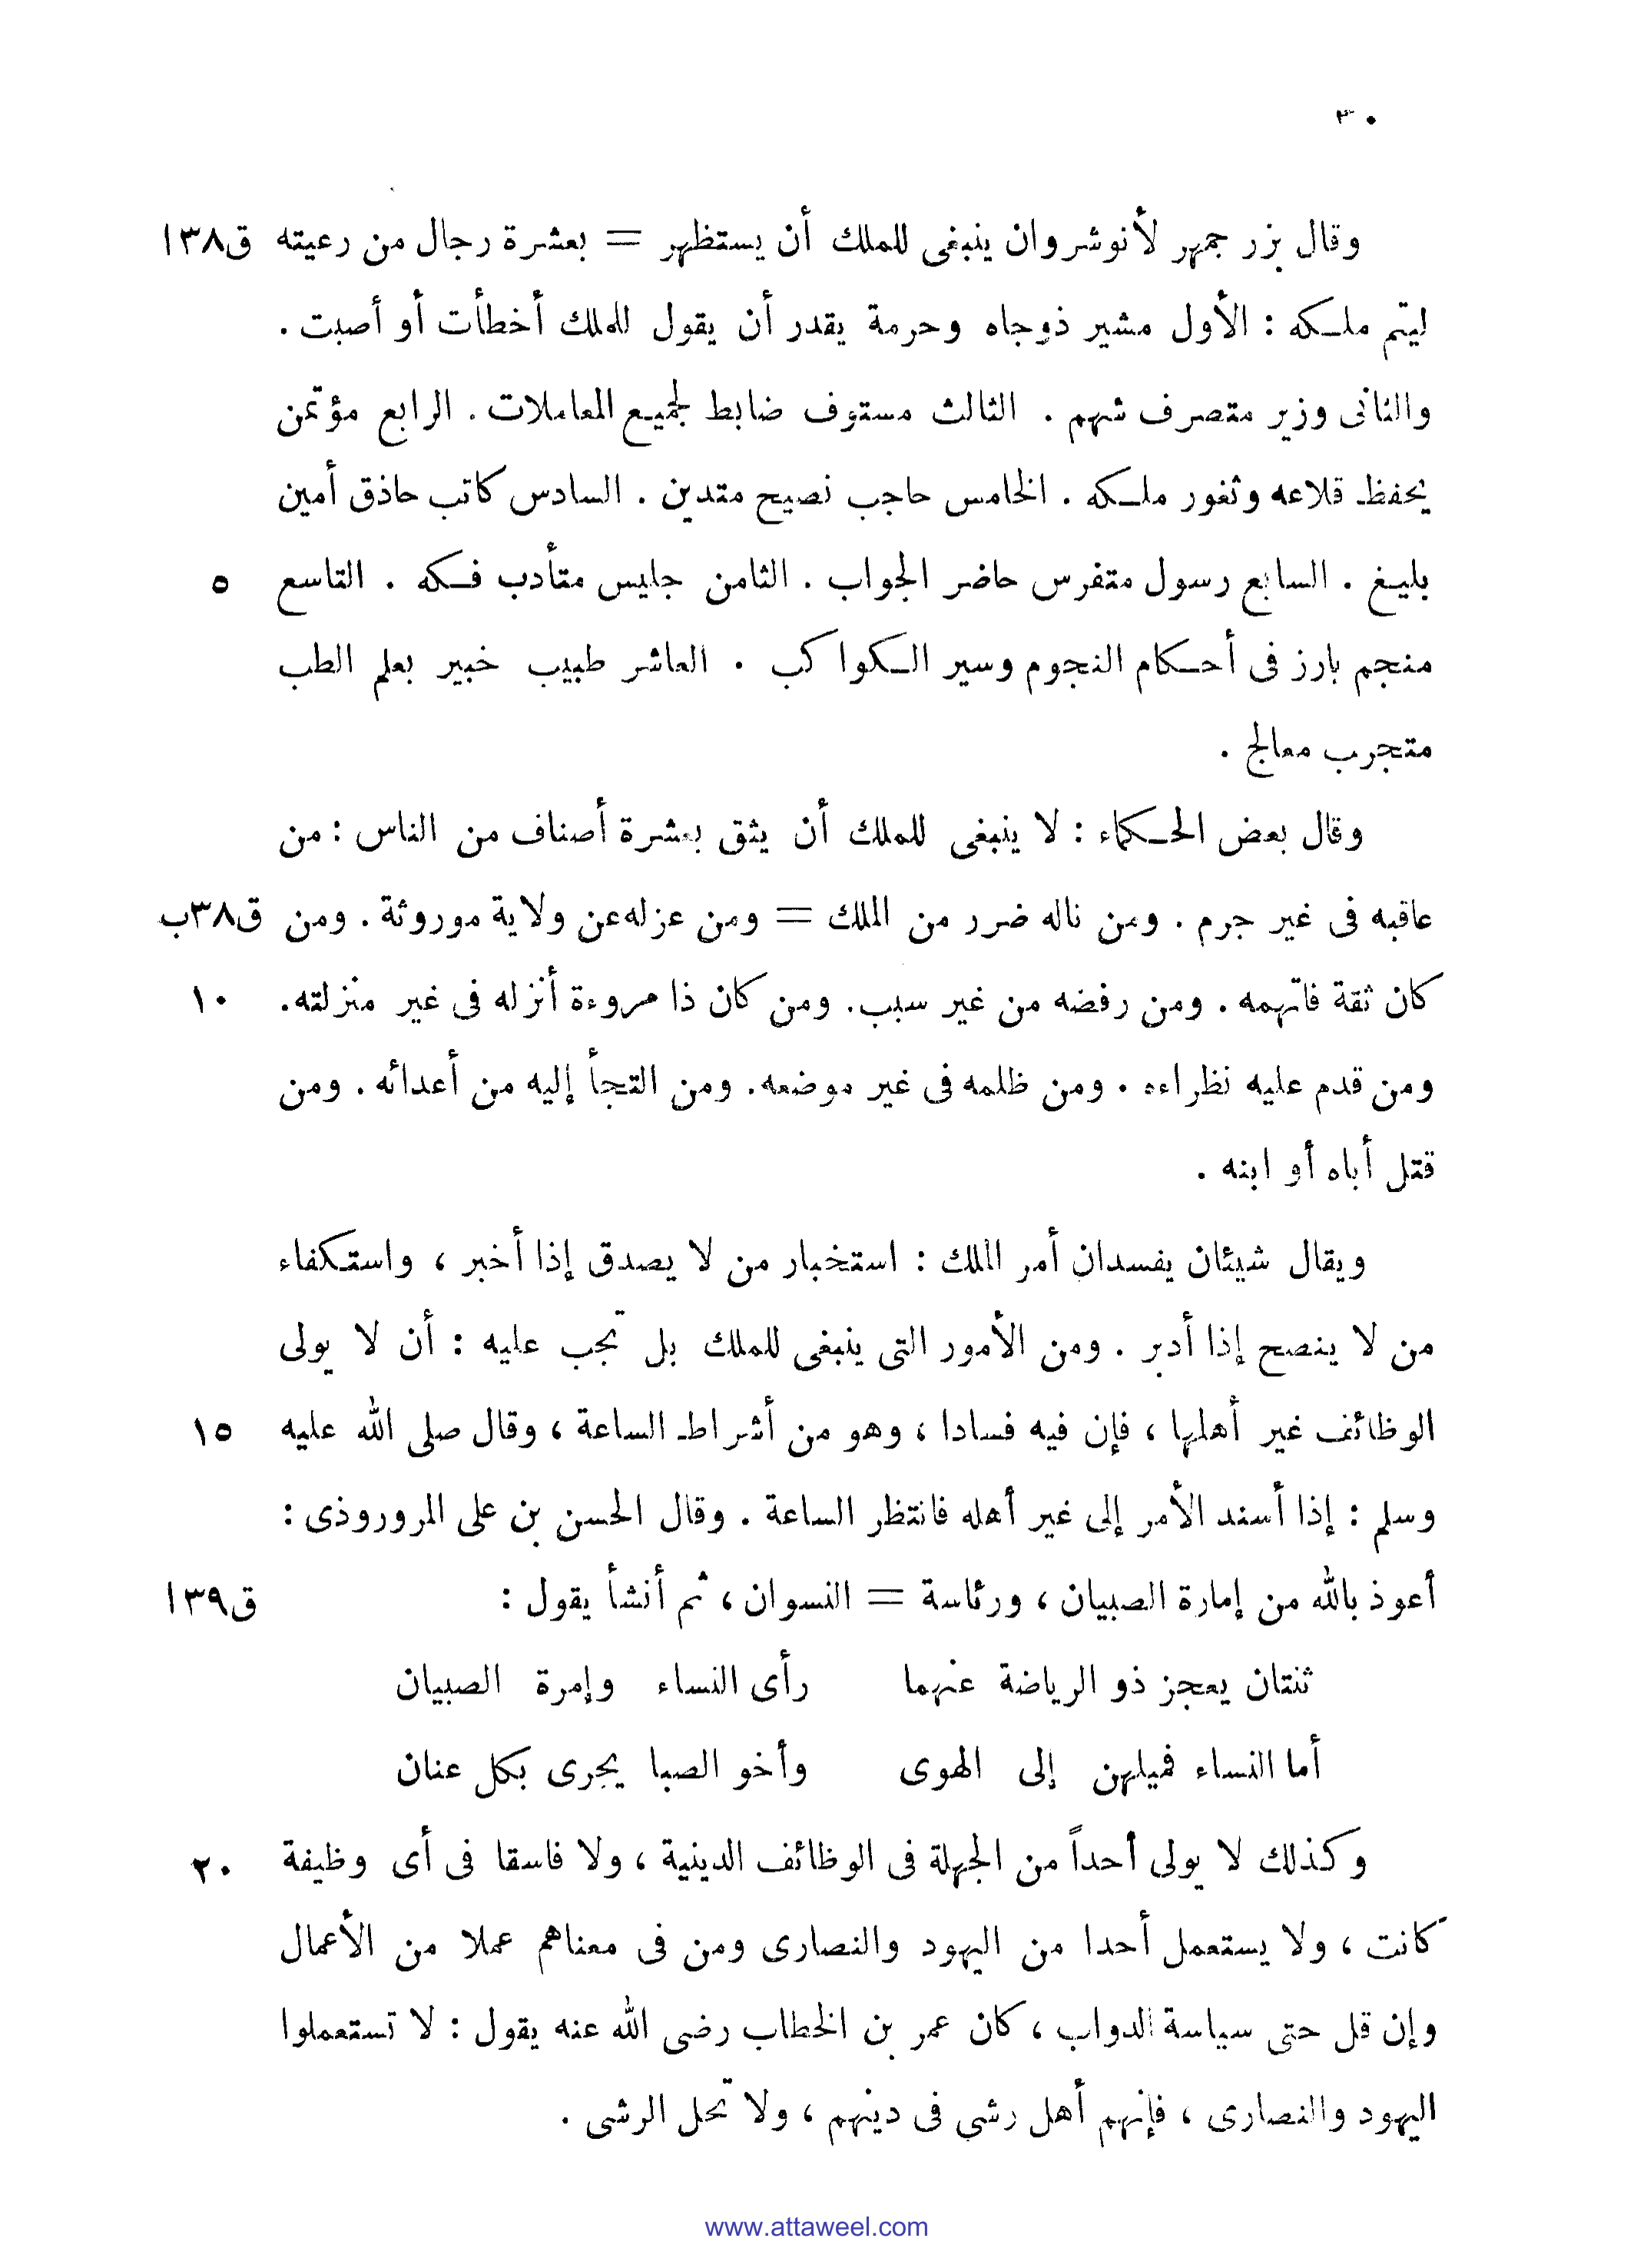 ٣٠
وقال بزر جمهر لأنوشروان ينبغى للملك أن يستظهر = بعشرة رجال من رعيته ق٣٨ا
ليتم ملكه : الأول مشير ذوجاه وحرمة يقدر أن يقول للملك أخطأت أو أصبت .
والثانى وزير متصرف شهم . الثالث مستوف ضابط لجميع المعاملات . الرابع مؤتمن
يحفظ قلاعه وثغور ملكه . الخامس حاجب نصيح متدين . السادس كاتب حاذق أمين
بليغ . السابع رسول متفرس حاضر الجواب . الثامن جليس متأدب فكه . التاسع ٥
منجم بارز فى أحكام النجوم وسير الكواكب . العاشر طبيب خبير بعلم الطب
متجرب معالج .
وقال بعض الحكماء : لا ينبغى للملك أن يثق بعشرة أصناف من الناس : من
عاقبه فى غير جرم . ومن ناله ضرر من الملك = ومن عزله عن ولاية موروثة . ومن ق٣٨ب
كان ثقة فاتهمه . ومن رفضه من غير سبب . ومن كان ذا مروءة أنزله فى غير منزلته . ١٠
ومن قدم عليه نظراءه . ومن ظلمه فى غير موضعه . ومن التجأ إليه من أعدائه . ومن
قتل أباه أو ابنه .
ويقال شيئان يفسدان أمر الملك : استخبار من لا يصدق إذا أخبر ، واستكفاء
من لا ينصح إذا أدبر . ومن الأمور التى ينبغى للملك بل تجب عليه : أن لا يولى
الوظائف غير أهلها ، فإن فيه فسادا ، وهو من أشراط الساعة ، وقال صلى الله عليه ١٥
وسلم : إذا أسند الأمر إلى غير أهله فانتظر الساعة . وقال الحسن بن على المروروذى :
أعوذ بالله من إمارة الصبيان ، ورئاسة = النسوان ، ثم أنشأ يقول : ق٣٩ا
ثنتان يعجز ذو الرياضة عنهما رأى النساء وإمرة الصبيان
أما النساء فميلهن إلى الهوى وأخو الصبا يجرى بكل عنان
وكذلك لا يولى أحداً من الجهلة فى الوظائف الدينية ، ولا فاسقا فى أى وظيفة ٢٠
كانت ، ولا يستعمل أحدا من اليهود والنصارى ومن فى معناهم عملا من الأعمال
وإن قل حتى سياسة الدواب ، كان عمر بن الخطاب رضى الله عنه يقول : لا تستعملوا
اليهود والنصارى ، فإنهم أهل رشى فى دينهم ، ولا تحل الرشى .
www.attaweel.com